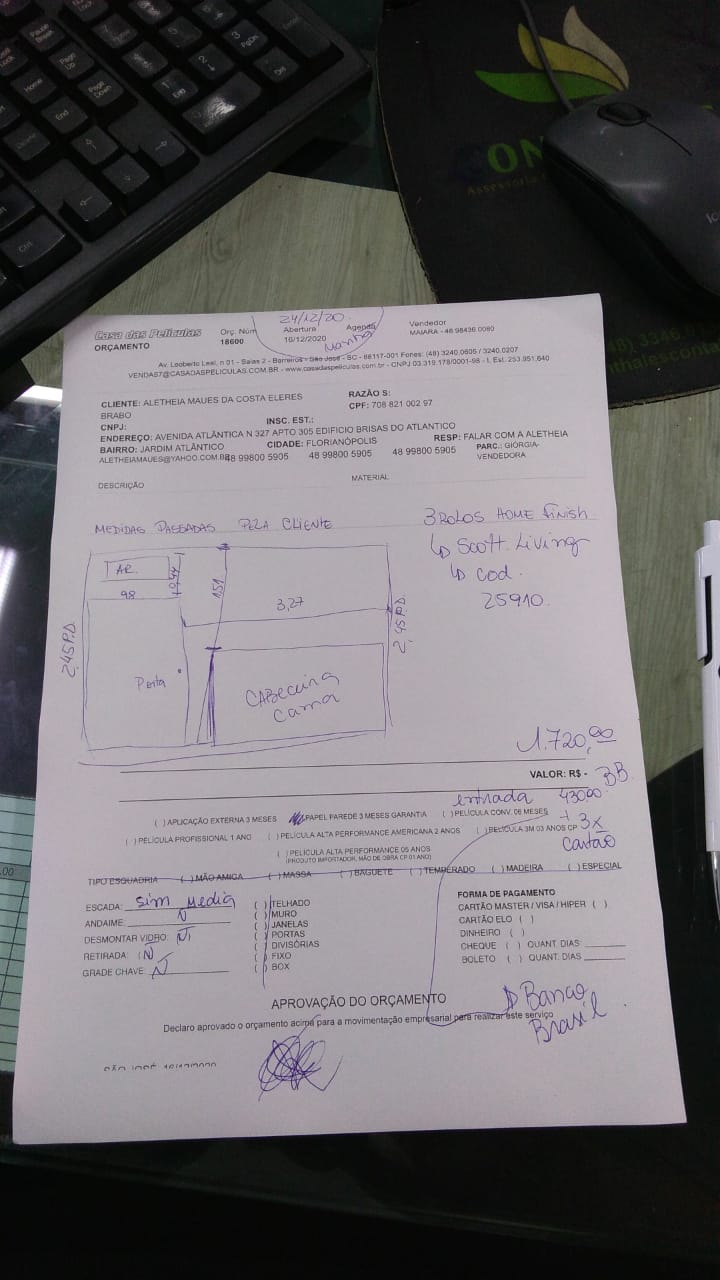 24/12/20.
Casa das Películas
Orç. Núm
Abertura
Agenda
Vendedor
ORÇAMENTO
18600
16/12/2020
Manhã
MAIARA - 48 98436 0080
Av. Leoberto Leal, n 01 - Salas 2 - Barreiros - São José - SC - 88117-001 Fones: (48) 3240.0605 / 3240.0207
VENDAS7@CASADASPELICULAS.COM.BR - www.casadaspeliculas.com.br - CNPJ 03.319.178/0001-98 - I. Est. 253.951.640
CLIENTE: ALETHEIA MAUES DA COSTA ELERES
BRABO
RAZÃO S:
CPF: 708 821 002 97
CNPJ:
INSC. EST.:
ENDEREÇO: AVENIDA ATLÂNTICA N 327 APTO 305 EDIFICIO BRISAS DO ATLANTICO
BAIRRO: JARDIM ATLÂNTICO
CIDADE: FLORIANÓPOLIS
RESP: FALAR COM A ALETHEIA
ALETHEIAMAUES@YAHOO.COM.BR
48 99800 5905
48 99800 5905
48 99800 5905
PARC.: GIÓRGIA-
VENDEDORA
DESCRIÇÃO
MATERIAL
MEDIDAS PASSADAS PELA CLIENTE
3 ROLOS HOME FINISH
↳ Scott. Living
↳ cod.
25910.
AR.
0,44
98
1,51
3,27
2,45 P.D.
2,45 P.D.
Porta
CABeceira
Cama
1.720,00
VALOR: R$ -
BB
entrada 430,00
+ 3x
Cartão
( ) APLICAÇÃO EXTERNA 3 MESES
PAPEL PAREDE 3 MESES GARANTIA
( ) PELÍCULA CONV. 06 MESES
( ) PELÍCULA PROFISSIONAL 1 ANO
( ) PELÍCULA ALTA PERFORMANCE AMERICANA 2 ANOS
( ) PELICULA 3M 03 ANOS CP
( ) PELÍCULA ALTA PERFORMANCE 05 ANOS
(PRODUTO IMPORTADOR, MÃO DE OBRA CP 01 ANO)
TIPO ESQUADRIA
( ) MÃO AMIGA
( ) MASSA
( ) BAGUETE
( ) TEMPERADO
( ) MADEIRA
( ) ESPECIAL
ESCADA: Sim Media
ANDAIME: N
DESMONTAR VIDRO: N
RETIRADA: N
GRADE CHAVE: N
( ) TELHADO
( ) MURO
( ) JANELAS
( ) PORTAS
( ) DIVISÓRIAS
( ) FIXO
( ) BOX
FORMA DE PAGAMENTO
CARTÃO MASTER / VISA / HIPER ( )
CARTÃO ELO ( )
DINHEIRO ( )
CHEQUE ( ) QUANT. DIAS
BOLETO ( ) QUANT. DIAS
APROVAÇÃO DO ORÇAMENTO
Declaro aprovado o orçamento acima para a movimentação empresarial para realizar este serviço
Banco
Brasil